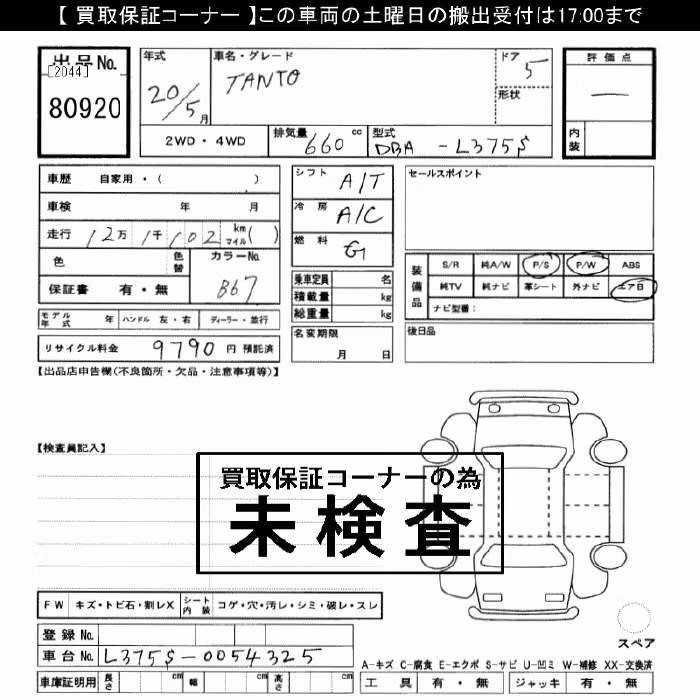 【 買取保証コーナー 】この車両の土曜日の搬出受付は17:00まで
出品No. [2044] 80920
年式 20/5月
車名・グレード TANTO
ドア 5
形状
評価点 —
内装
2WD・4WD
排気量 660 cc
型式 DBA - L375S
車歴 自家用・( )
車検 年 月
走行 12万 1千 102 km マイル( )
色 色替 カラーNo. B67
保証書 有・無
モデル年式 年 ハンドル 左・右 ディーラー・並行
リサイクル料金 9790 円 預託済
シフト A/T
冷房 A/C
燃料 G
乗車定員 名
積載量 kg
総重量 kg
名変期限 月 日
セールスポイント
装備品 S/R 純A/W P/S P/W ABS
純TV 純ナビ 革シート 外ナビ エアB
ナビ型番：
後日品
【出品店申告欄(不良箇所・欠品・注意事項等)】
【検査員記入】
買取保証コーナーの為
未検査
FW キズ・トビ石・割レX シート内装 コゲ・穴・汚レ・シミ・破レ・スレ
登録No.
車台No. L375S-0054325
車庫証明用 長さ cm 幅 cm 高さ cm
スペア
A-キズ C-腐食 E-エクボ S-サビ U-凹ミ W-補修 XX-交換済
工具 有・無 ジャッキ 有・無